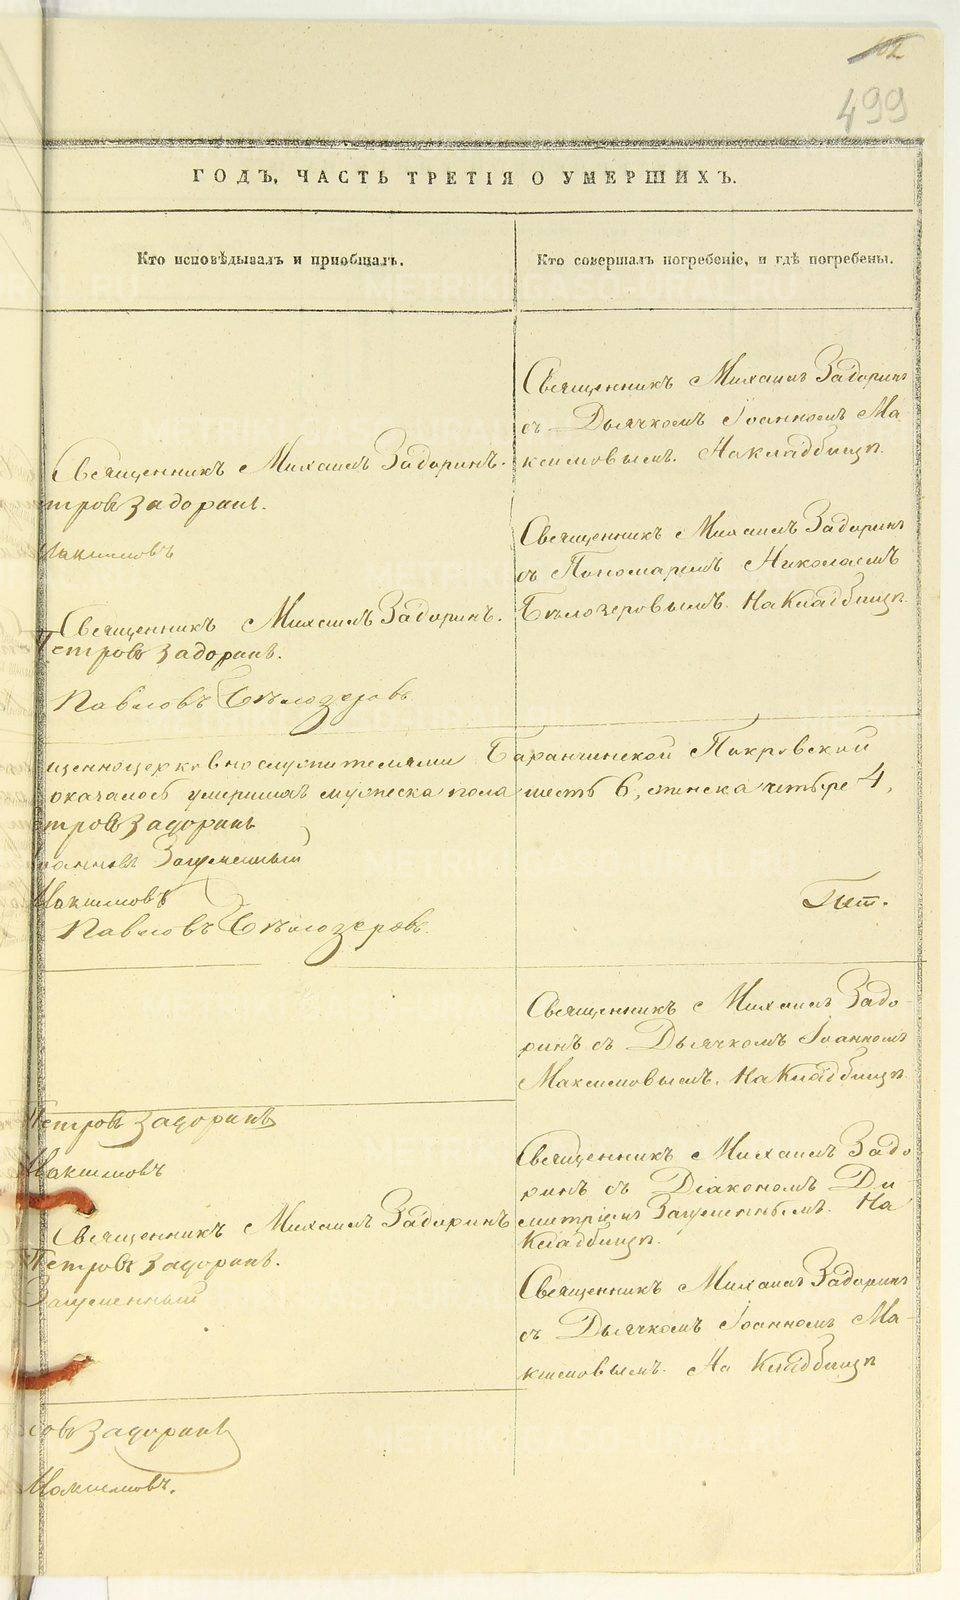 499
ГОДЪ, ЧАСТЬ ТРЕТІЯ О УМЕРШИХЪ.
Кто исповѣдывалъ и приобщалъ.
Кто совершалъ погребеніе, и гдѣ погребены.
Священникъ Михаилъ Задоринъ
съ Дьячкомъ Іоанномъ Ма-
ксимовымъ. На кладбищѣ.
Священникъ Михаилъ Задоринъ.
тровъ Задоринъ.
Максимовъ
Священникъ Михаилъ Задоринъ
съ Пономаремъ Николаемъ
Бѣлозеровымъ. На кладбищѣ.
Священникъ Михаилъ Задоринъ.
Петровъ Задоринъ.
Павловъ Бѣлозеровъ
щенноцерковнослужителями Баранчинской Покровской
оказалось умершихъ мужеска пола шесть 6, женска четыре 4,
тровъ Задоринъ
Максимовъ
Павловъ Бѣлозеровъ.
Священникъ Михаилъ Задо-
ринъ съ Дьячкомъ Іоанномъ
Максимовымъ. На Кладбищѣ.
Петровъ Задоринъ
Максимовъ
Священникъ Михаилъ Задо-
ринъ съ Діакономъ Ди-
митріемъ На
Кладбищѣ.
Священникъ Михаилъ Задоринъ
Петровъ Задоринъ.
Священникъ Михаилъ Задоринъ
съ Дьячкомъ Іоанномъ Ма-
ксимовымъ. На Кладбищѣ
Задоринъ
Максимовъ.
METRIKI.GASO-URAL.RU